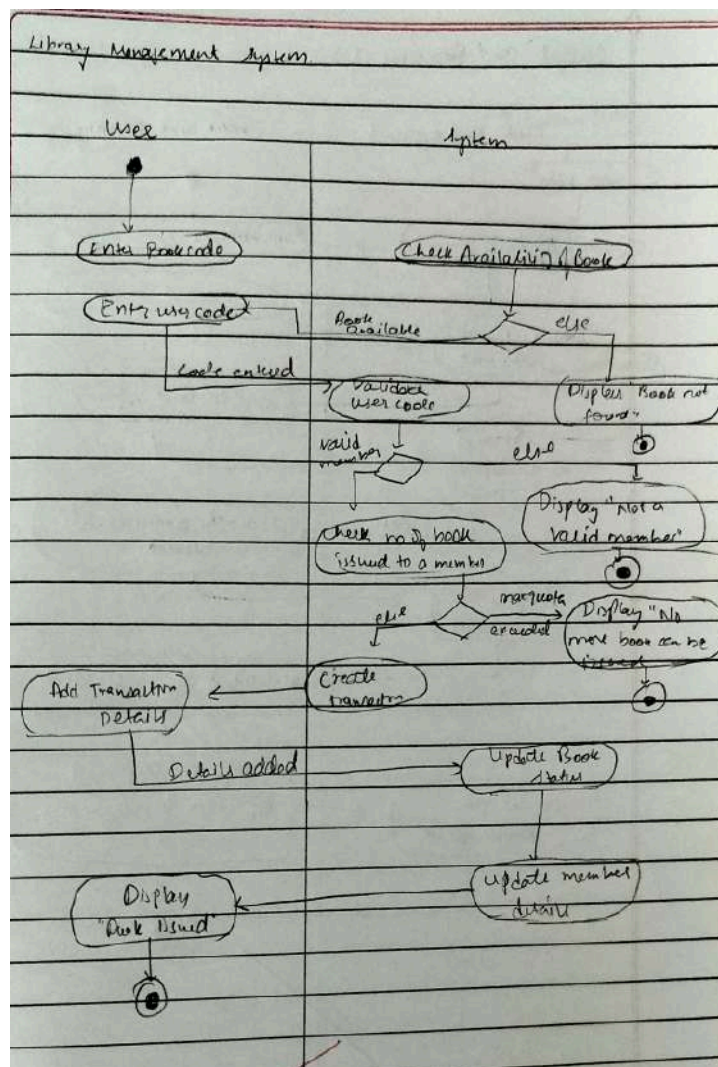 Library Management System
User
System
Enter Book code
Check Availability of Book
Enter user code
Book
available
else
Code entered
Validate
user code
Display "Book not
found"
valid
member
else
Display "Not a
valid member"
Check no of book
issued to a member
else
max quota
exceeded
Display "No
more book can be
issued
Create
transaction
Add Transaction
Details
Details added
Update Book
status
Update member
details
Display
"Book Issued"